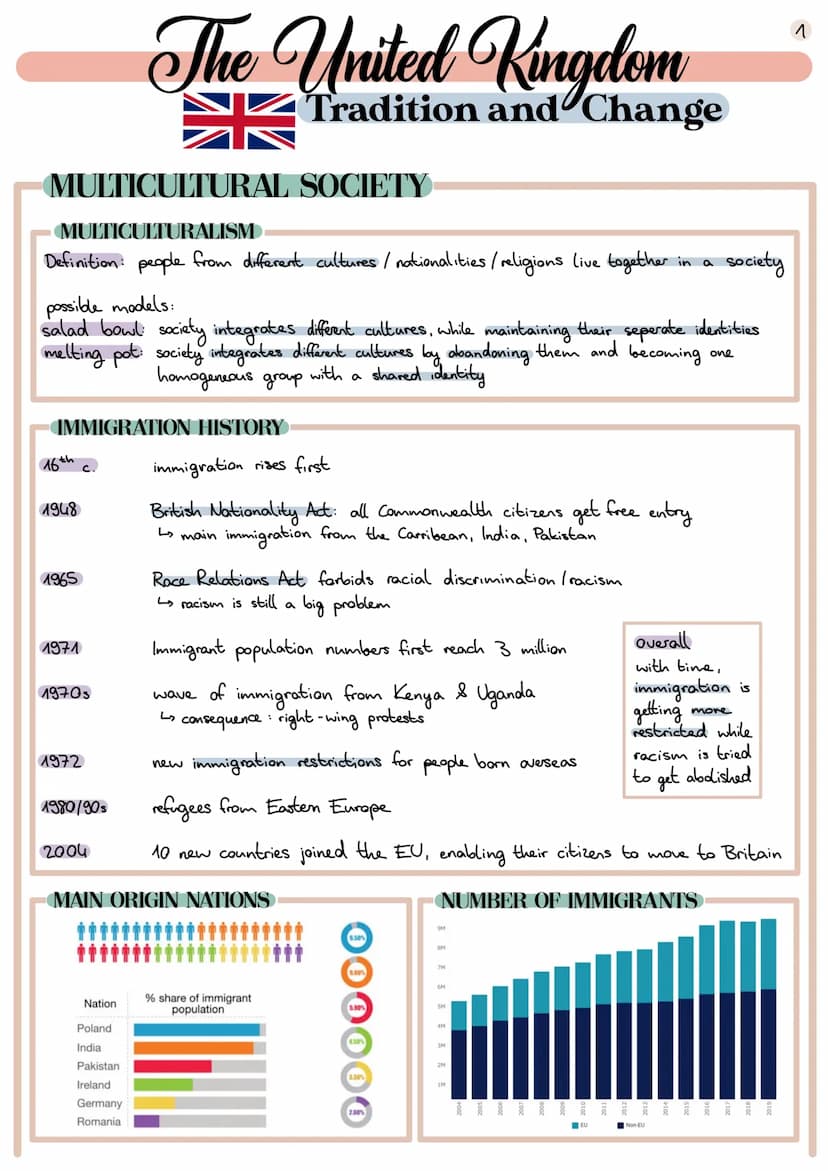 1
The United Kingdom
Tradition and Change
MULTICULTURAL SOCIETY
MULTICULTURALISM
Definition: people from different cultures / nationalities / religions live together in a society
possible models:
salad bowl: society integrates different cultures, while maintaining their seperate identities
melting pot: society integrates different cultures by abandoning them and becoming one
homogeneous group with a shared identity
IMMIGRATION HISTORY
16th c. immigration rises first
1948 British Nationality Act: all Commonwealth citizens get free entry
↳ main immigration from the Carribean, India, Pakistan
1965 Race Relations Act forbids racial discrimination / racism
↳ racism is still a big problem
1971 Immigrant population numbers first reach 3 million
1970s wave of immigration from Kenya & Uganda
↳ consequence: right-wing protests
1972 new immigration restrictions for people born overseas
1980/90s refugees from Eastern Europe
2004 10 new countries joined the EU, enabling their citizens to move to Britain
overall
with time,
immigration is
getting more
restricted while
racism is tried
to get abolished
MAIN ORIGIN NATIONS
Nation % share of immigrant
population
Poland
India
Pakistan
Ireland
Germany
Romania
9.50%
9.00%
2.00%
NUMBER OF IMMIGRANTS
9M
8M
7M
6M
5M
4M
3M
2M
1M
2004 2005 2006 2007 2008 2009 2010 2011 2012 2013 2014 2015 2016 2017 2018 2019
EU Non-EU